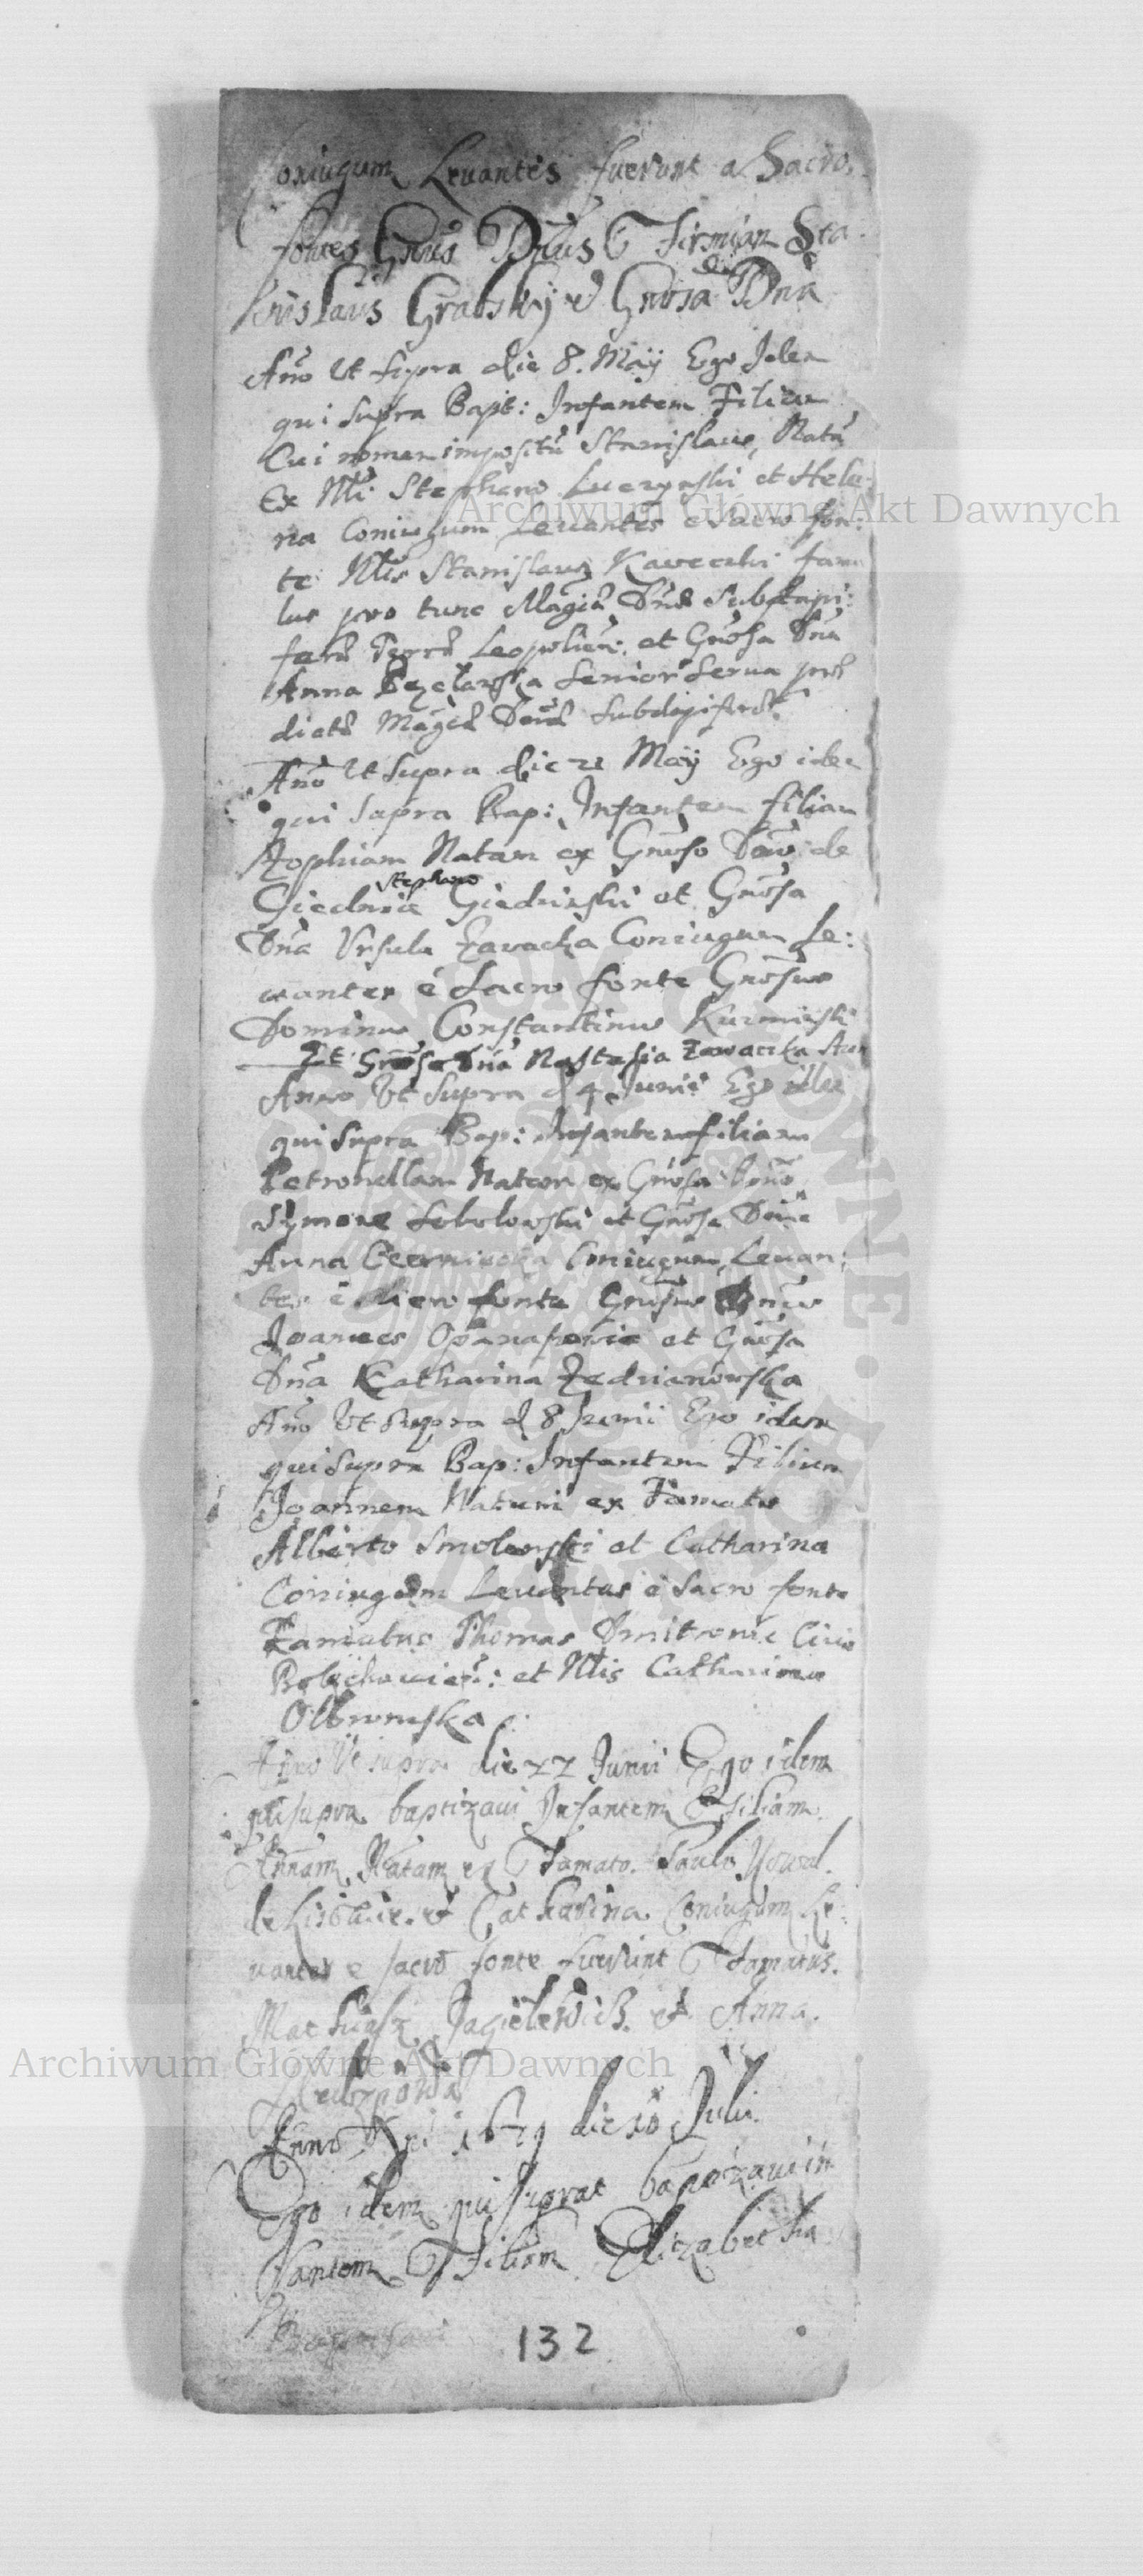 Coniugum Levantes fuerunt a Sacro
fontes Gnus Dnus Firmian Sta
nislaus Grabskÿ et Gnosa Dna
Ano Ut supra die 8. Maÿ Ego Idem
qui supra Bapt: Infantem Filium
Cui nomen impositu Stanislaus, Natu
Ex Nli Stephano Luczynski et Hele
na Coniugum Levantes e Sacro fon:
te Nlis Stanislaus Kawecki famu
lus pro tunc Magci Dni Subdapi:
feri Terræ Leopolien: et Gnosa Dna
Anna senior serva præ
dicti Magci Dni Subdapiferi
Ano Ut supra die 21 Maÿ Ego idem
qui supra Bap: Infantem filiam
Zophiam Natam ex Gnoso Dno de
Stephano
Giednia Giedzinski et Gnosa
Dna Ursula Zavacka Coniugum Le:
vantes é Sacro fonte Gnosus
Dominus Constantinus Kuzminski
Et Gnosa Dna Nastasia Zawaczka
Anno Ut Supra d 4 Junii Ego idem
qui supra Bap: Infantem filiam
Petronellam Natam ex Gnoso Dno
Symone Sobolowski et Gnosa Dna
Anna Coniugum Levan:
tes é Sacro fonte Gnosus Dnus
Joannes et Gnosa
Dna Katharina Zedrianowska
Ano Ut Supra d 8 Junii Ego idem
qui supra Bap: Infantem Filium
Joannem Natum ex Famato
Alberto Smolenski et Catharina
Coniugum Levantes é Sacro fonte
Famatus Thomas Dmitrowic Civis
Bolechovien: et Nlis Catharina
Olbromska
Anno Ut supra die 22 Junii Ego idem
qui supra baptizavi Infantem Filiam
Annam Natam ex Famato Paulo Kowal.
de Lisowic. et Catharina Coniugum Le:
vantes e sacro fonte fuerunt Famatus.
Mathiasz Jagielewicz. et Anna.
Anno Dni 1679 die 10 Julii
Ego idem qui suprat baptizavi in
fantem Filiam Elizabetha
132
Archiwum Główne Akt Dawnych
Archiwum Główne Akt Dawnych